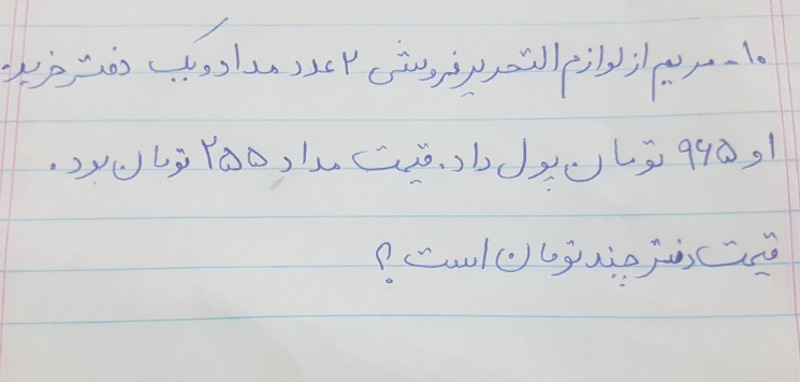 ۱۰- مریم از لوازم التحریر فروشی ۲ عدد مداد و یک دفتر خرید.
او ۹۶۵ تومان پول داد. قیمت مداد ۲۵۵ تومان بود.
قیمت دفتر چند تومان است؟